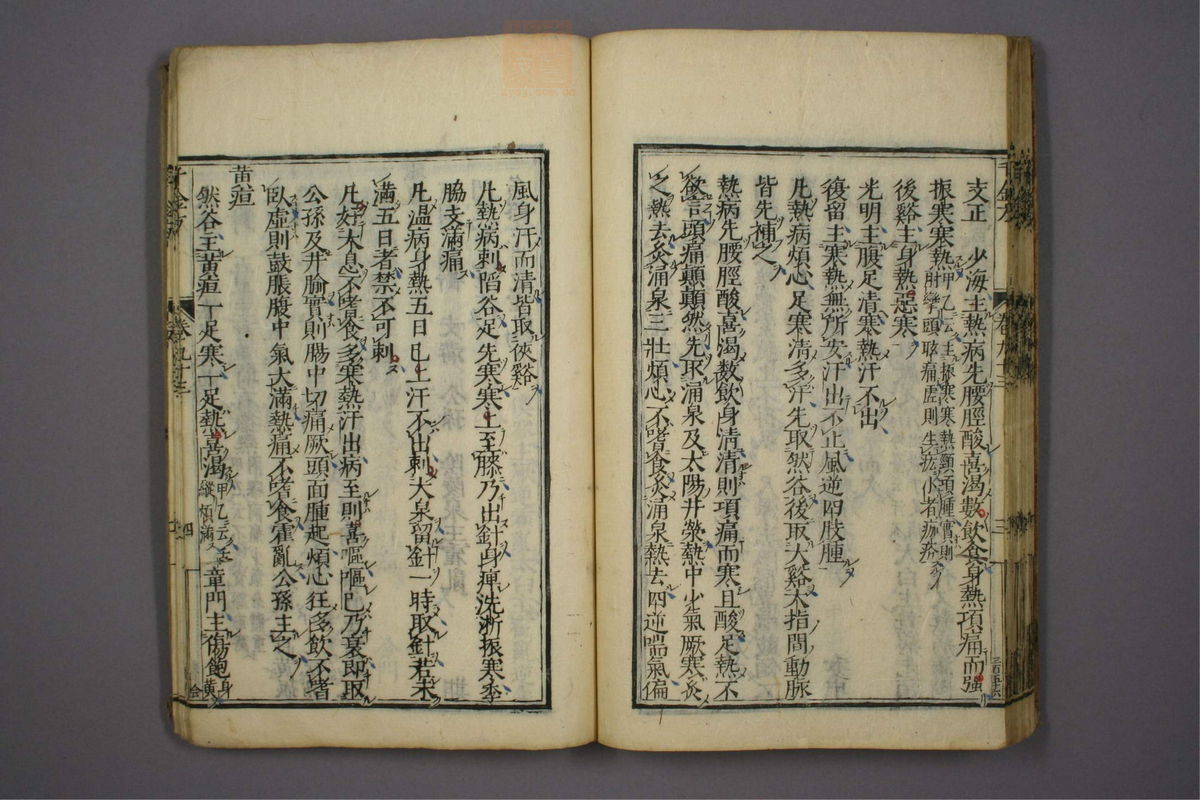 支正　少海主熱病先腰脛酸喜渴數飲食身熱項痛而強
振寒寒熱甲乙云主振寒寒熱頸項腫實則
肘攣頭眩痛虛則生疣小者痂疥
後谿主身熱惡寒
光明主腹足清寒熱汗不出
復留主寒熱無所安汗出不止風逆四肢腫
凡熱病煩心足寒清多汗先取然谷後取大谿大指間動脉
皆先補之
熱病先腰脛酸喜渴數飲身清清則項痛而寒且酸足熱不
欲言頭痛顛顛然先取涌泉及太陽井滎熱中少氣厥寒灸
之熱去灸涌泉三壯煩心不嗜食灸涌泉熱去四逆喘氣偏
千金方
卷九十三
三
風身汗而清皆取俠谿
凡熱病刺陷谷足先寒寒上至膝乃出針身痺洗淅振寒季
脇支滿痛
凡溫病身熱五日已上汗不出刺大泉留針一時取針若未
滿五日者禁不可刺
凡好太息不嗜食多寒熱汗出病至則喜嘔嘔已乃衰即取
公孫及井腧實則腸中切痛厥頭面腫起煩心狂多飲不嗜
臥虛則鼓脹腹中氣大滿熱痛不嗜食霍亂公孫主之
黃疸
然谷主黃疸一足寒一足熱喜渴甲乙云主
縱煩滿
章門主傷飽身
黃
千金方
卷九十三
四